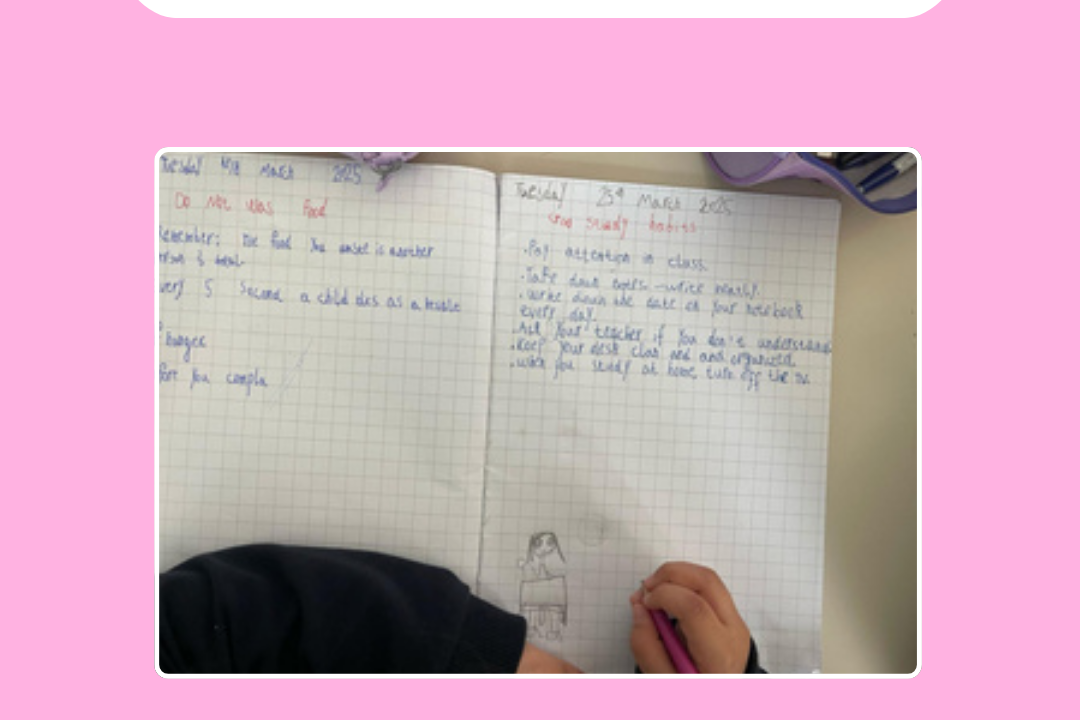 Tuesday March 2025
Do Not Was Food
Remember: the food you is another
very 5 Second a child dies as a
fore you compla
Tuesday 25th March 2025
study habits
.Pay attention in class.
.Take down notes -write neatly.
.write down the date on your notebook
every day.
.Ask your teacher if you don't understand
.Keep your desk and and organized.
.when you study at home turn off the